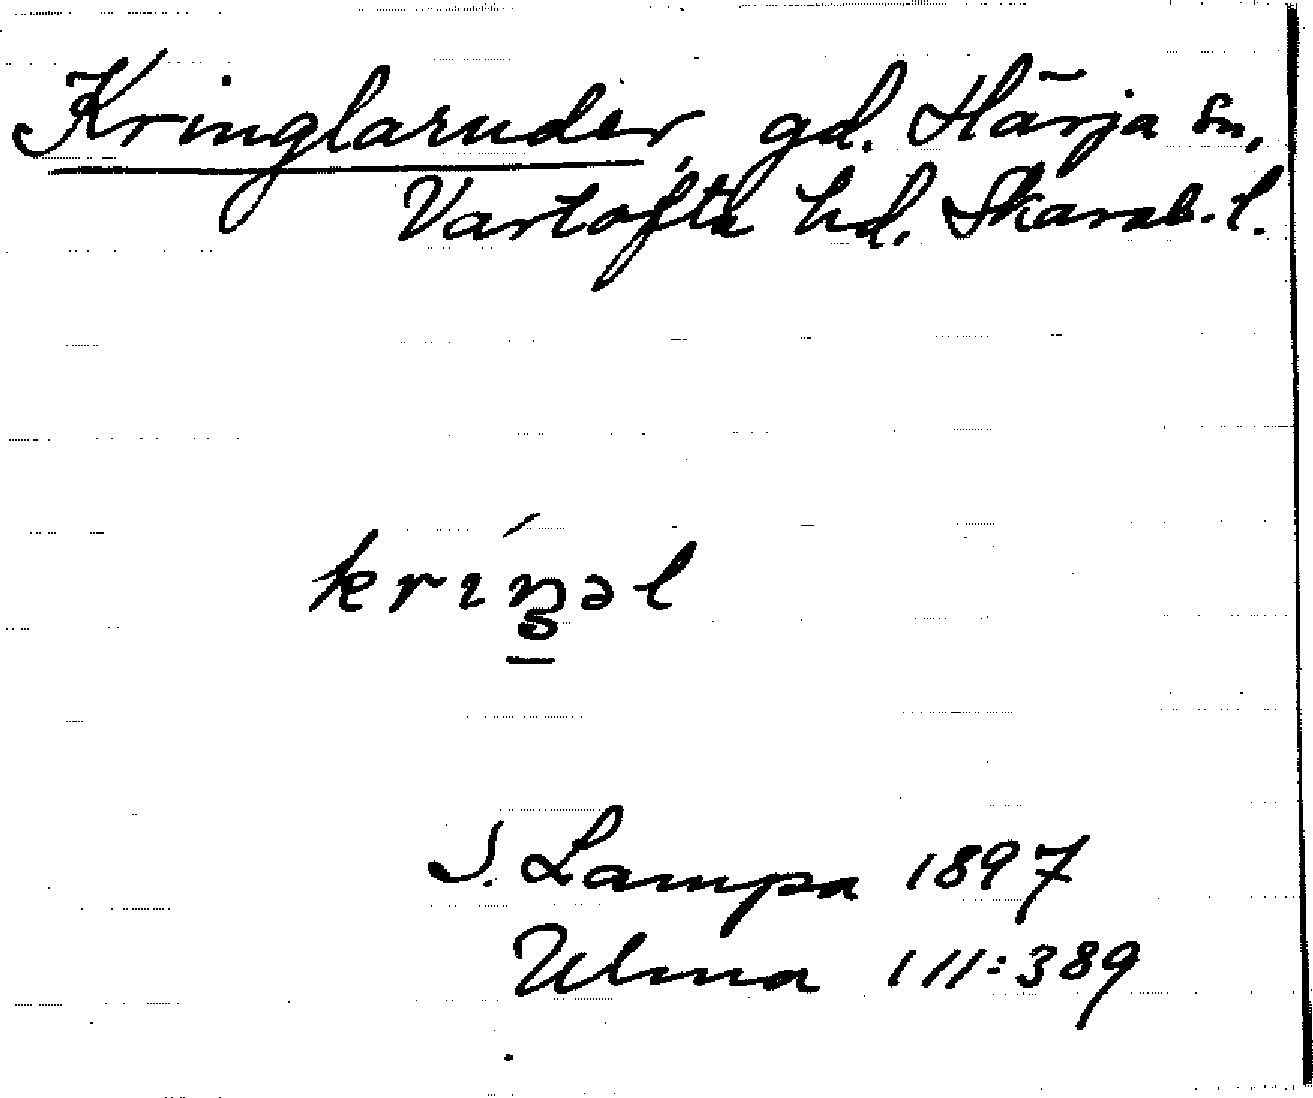 Kringlaruder, gd. Härja sn,
Vartofta hd. Skarab. l.
kríŋəl
S. Lampa 1897
Ulma 111:389